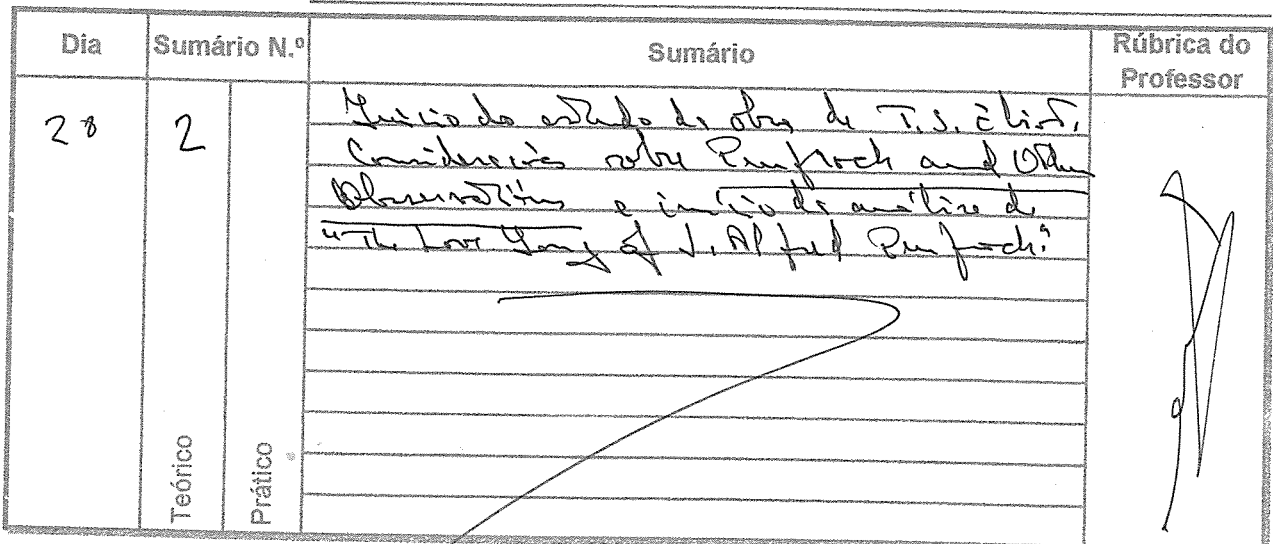 Dia Sumário N.º Sumário Rúbrica do Professor
28 2
Início do estudo da obra de T.S. Eliot.
Considerações sobre Prufrock and Other
Observations e início da análise de
"The Love Song of J. Alfred Prufrock".
Teórico
Prático